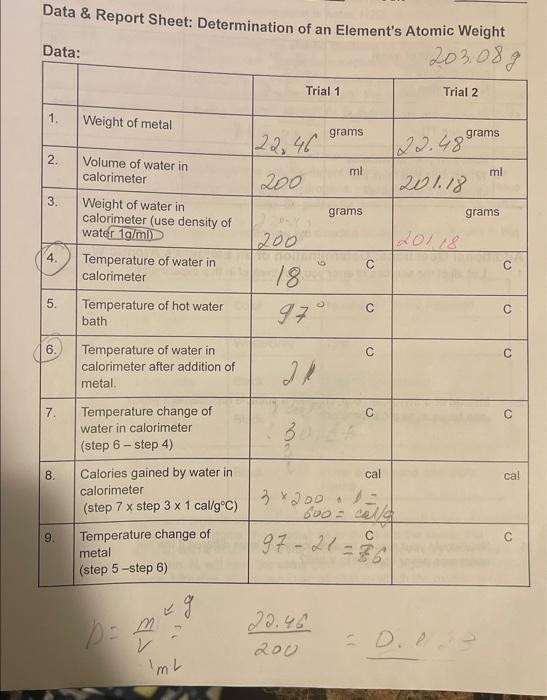 Data & Report Sheet: Determination of an Element's Atomic Weight
Data:
203.08 g
Trial 1
Trial 2
1. Weight of metal
22.46 grams
22.48 grams
2. Volume of water in
calorimeter
200 ml
201.18 ml
3. Weight of water in
calorimeter (use density of
water 1g/ml)
200 grams
201.18 grams
4. Temperature of water in
calorimeter
18° C
C
5. Temperature of hot water
bath
97° C
C
6. Temperature of water in
calorimeter after addition of
metal.
21 C
C
7. Temperature change of
water in calorimeter
(step 6 – step 4)
3 C
C
8. Calories gained by water in
calorimeter
(step 7 x step 3 x 1 cal/g°C)
cal
3 × 200 · 1 =
600 = cal/g
cal
9. Temperature change of
metal
(step 5 –step 6)
97 - 21 = 76 C
C
D = m/v = g
1mL
22.46
200
=